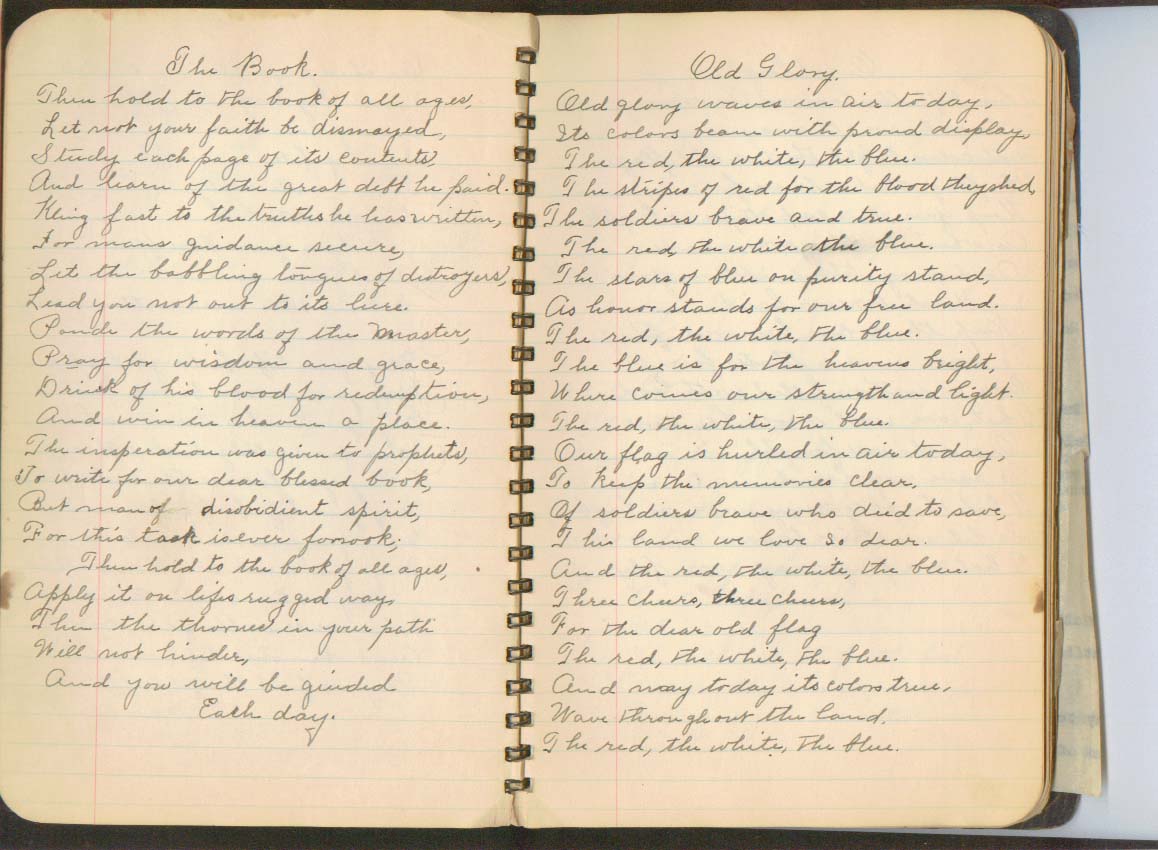 The Book.
Then hold to the book of all ages,
Let not your faith be dismayed,
Study each page of its contents,
And learn of the great debt he paid.
Kling fast to the truths he has written,
For mans guidance secure,
Let the babbling tongues of distroyers,
Lead you not out to its lure.
Ponde the words of the Master,
Pray for wisdom and grace,
Drink of his blood for redemption,
And win in heaven a place.
The insperation was given to prophets,
To write for our dear blessed book,
But man of disobidient spirit,
For this task is ever forsook;
Then hold to the book of all ages,
Apply it on lifes rugged way,
Then the thornes in your path
Will not hinder,
And you will be guided
Each day.
Old Glory.
Old glory waves in air today,
Its colors beam with proud display,
The red, the white, the blue.
The stripes of red for the blood they shed,
The soldiers brave and true.
The red, the white the blue.
The stars of blue on purity stand,
As honor stands for our free land.
The red, the white, the blue.
The blue is for the heavens bright,
Where comes our strength and light.
The red, the white, the blue.
Our flag is hurled in air today,
To keep the memories clear,
Of soldiers brave who died to save,
This land we love so dear.
And the red, the white, the blue.
Three cheers, three cheers,
For the dear old flag
The red, the white, the blue.
And may today its colors true,
Wave throughout the land.
The red, the white, the blue.